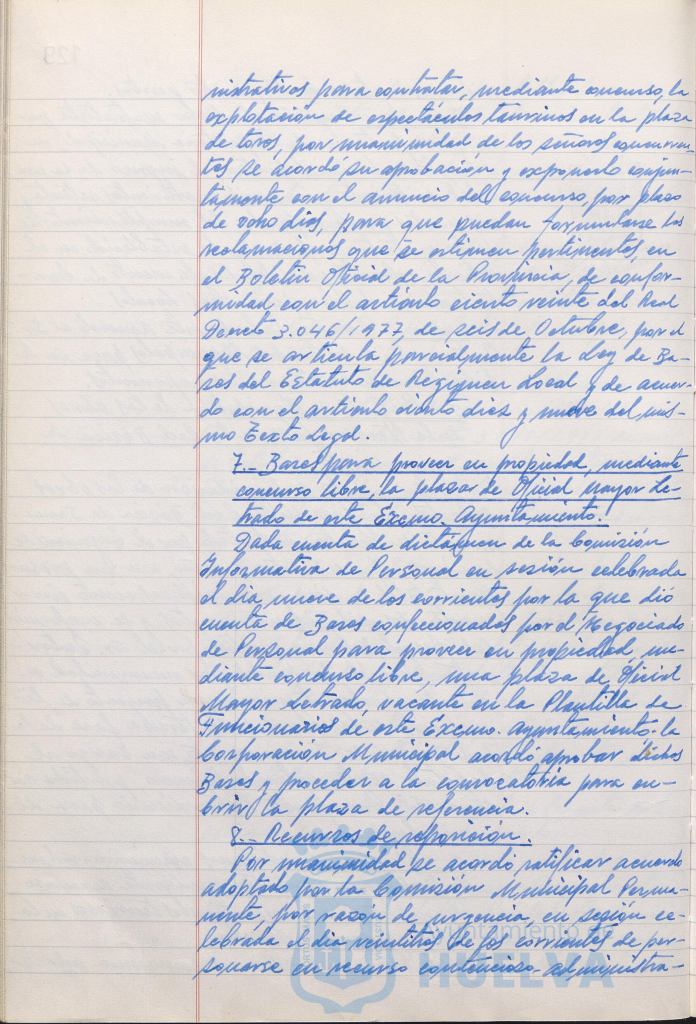 nistrativos para contratar, mediante concurso, la
explotación de espectáculos taurinos en la plaza
de toros, por unanimidad de los señores concurren-
tes se acordó su aprobación y exponerlo conjun-
tamente con el anuncio del concurso, por plazo
de ocho días, para que puedan formularse las
reclamaciones que se estimen pertinentes, en
el Boletín Oficial de la Provincia, de confor-
midad con el artículo ciento veinte del Real
Decreto 3.046/1977, de seis de Octubre, por el
que se articula parcialmente la Ley de Ba-
ses del Estatuto de Régimen Local y de acuer-
do con el artículo ciento diez y nueve del mis-
mo Texto Legal.
7.- Bases para proveer en propiedad, mediante
concurso libre, la plaza de Oficial Mayor Le-
trado de este Excmo. Ayuntamiento.
Dada cuenta de dictamen de la Comisión
Informativa de Personal en sesión celebrada
el día nueve de los corrientes por la que dió
cuenta de Bases confeccionadas por el Negociado
de Personal para proveer en propiedad, me-
diante concurso libre, una plaza de Oficial
Mayor Letrado, vacante en la Plantilla de
Funcionarios de este Excmo. Ayuntamiento. la
Corporación Municipal acordó aprobar dichas
Bases y proceder a la convocatoria para cu-
brir la plaza de referencia.
8.- Recursos de reposición.
Por unanimidad se acordó ratificar acuerdo
adoptado por la Comisión Municipal Perma-
nente, por razón de urgencia, en sesión ce-
lebrada el día veintitrés de los corrientes de per-
sonarse en recurso contencioso-administra-
Ayuntamiento de
HUELVA
129